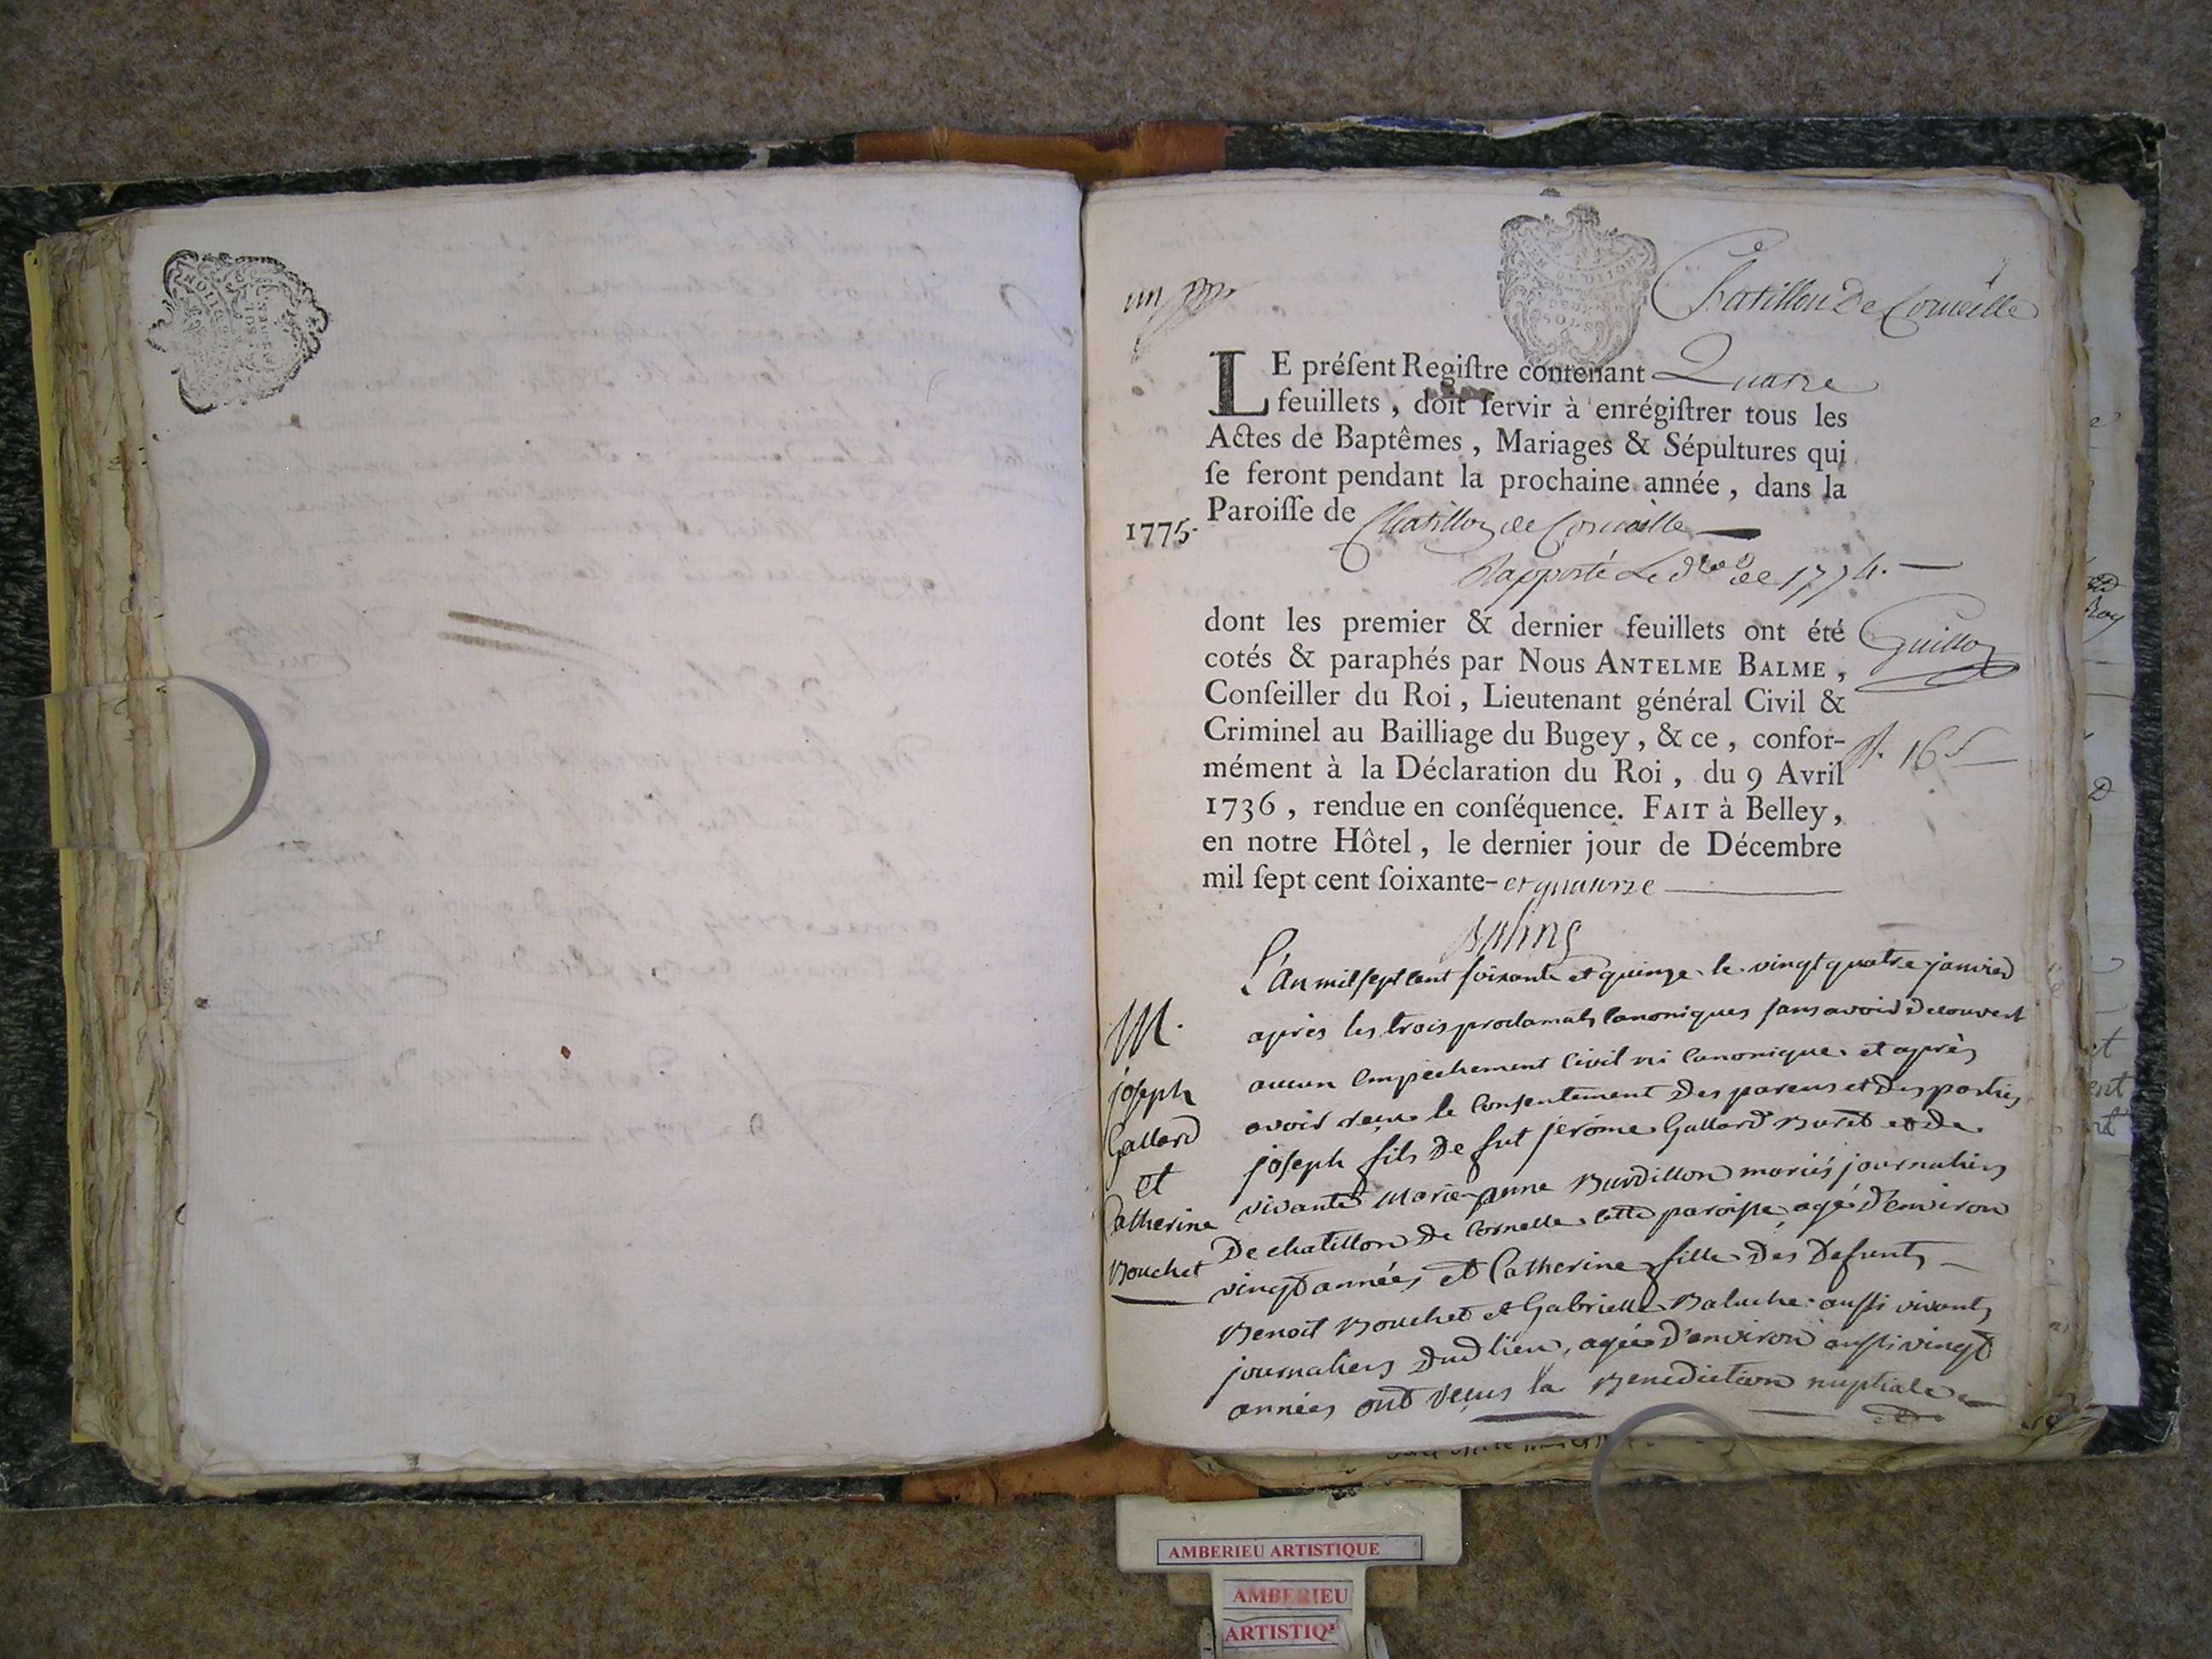 un
Chatillon De Corneille
LE préſent Regiſtre contenant Quatre
feuillets, doit ſervir à enrégiſtrer tous les
Actes de Baptêmes, Mariages & Sépultures qui
ſe feront pendant la prochaine année, dans la
Paroiſſe de Chatillon de Corneille
1775.
Rapporté Le de 1774.
dont les premier & dernier feuillets ont été
cotés & paraphés par Nous ANTELME BALME,
Conſeiller du Roi, Lieutenant général Civil &
Criminel au Bailliage du Bugey, & ce, confor-
mément à la Déclaration du Roi, du 9 Avril
1736, rendue en conſéquence. FAIT à Belley,
en notre Hôtel, le dernier jour de Décembre
mil ſept cent ſoixante- et quatorze
Guillot
16 s
M.
joseph
Gallard
et
Catherine
Bouchet
L'an mil sept cent soixante et quinze le vingt quatre janvier
après les trois proclamats canoniques sans avoir decouvert
aucun empèchement civil ni canonique et après
avoir reçu le consentement Des parens et Des parties
joseph fils De fut jerôme Gallard Buret et de
vivante Marie-anne Burdillon mariés journaliers
De chatillon de Cornelle cette paroisse, agé D'environ
vingt années et Catherine fille Des Defunts
Benoit Bouchet et Gabrielle Baluche aussi vivants
journaliers Dud lieu, agée D'environ aussi vingt
années ont reçus la Benediction nuptiale
AMBERIEU ARTISTIQUE
AMBERIEU
ARTISTIQ